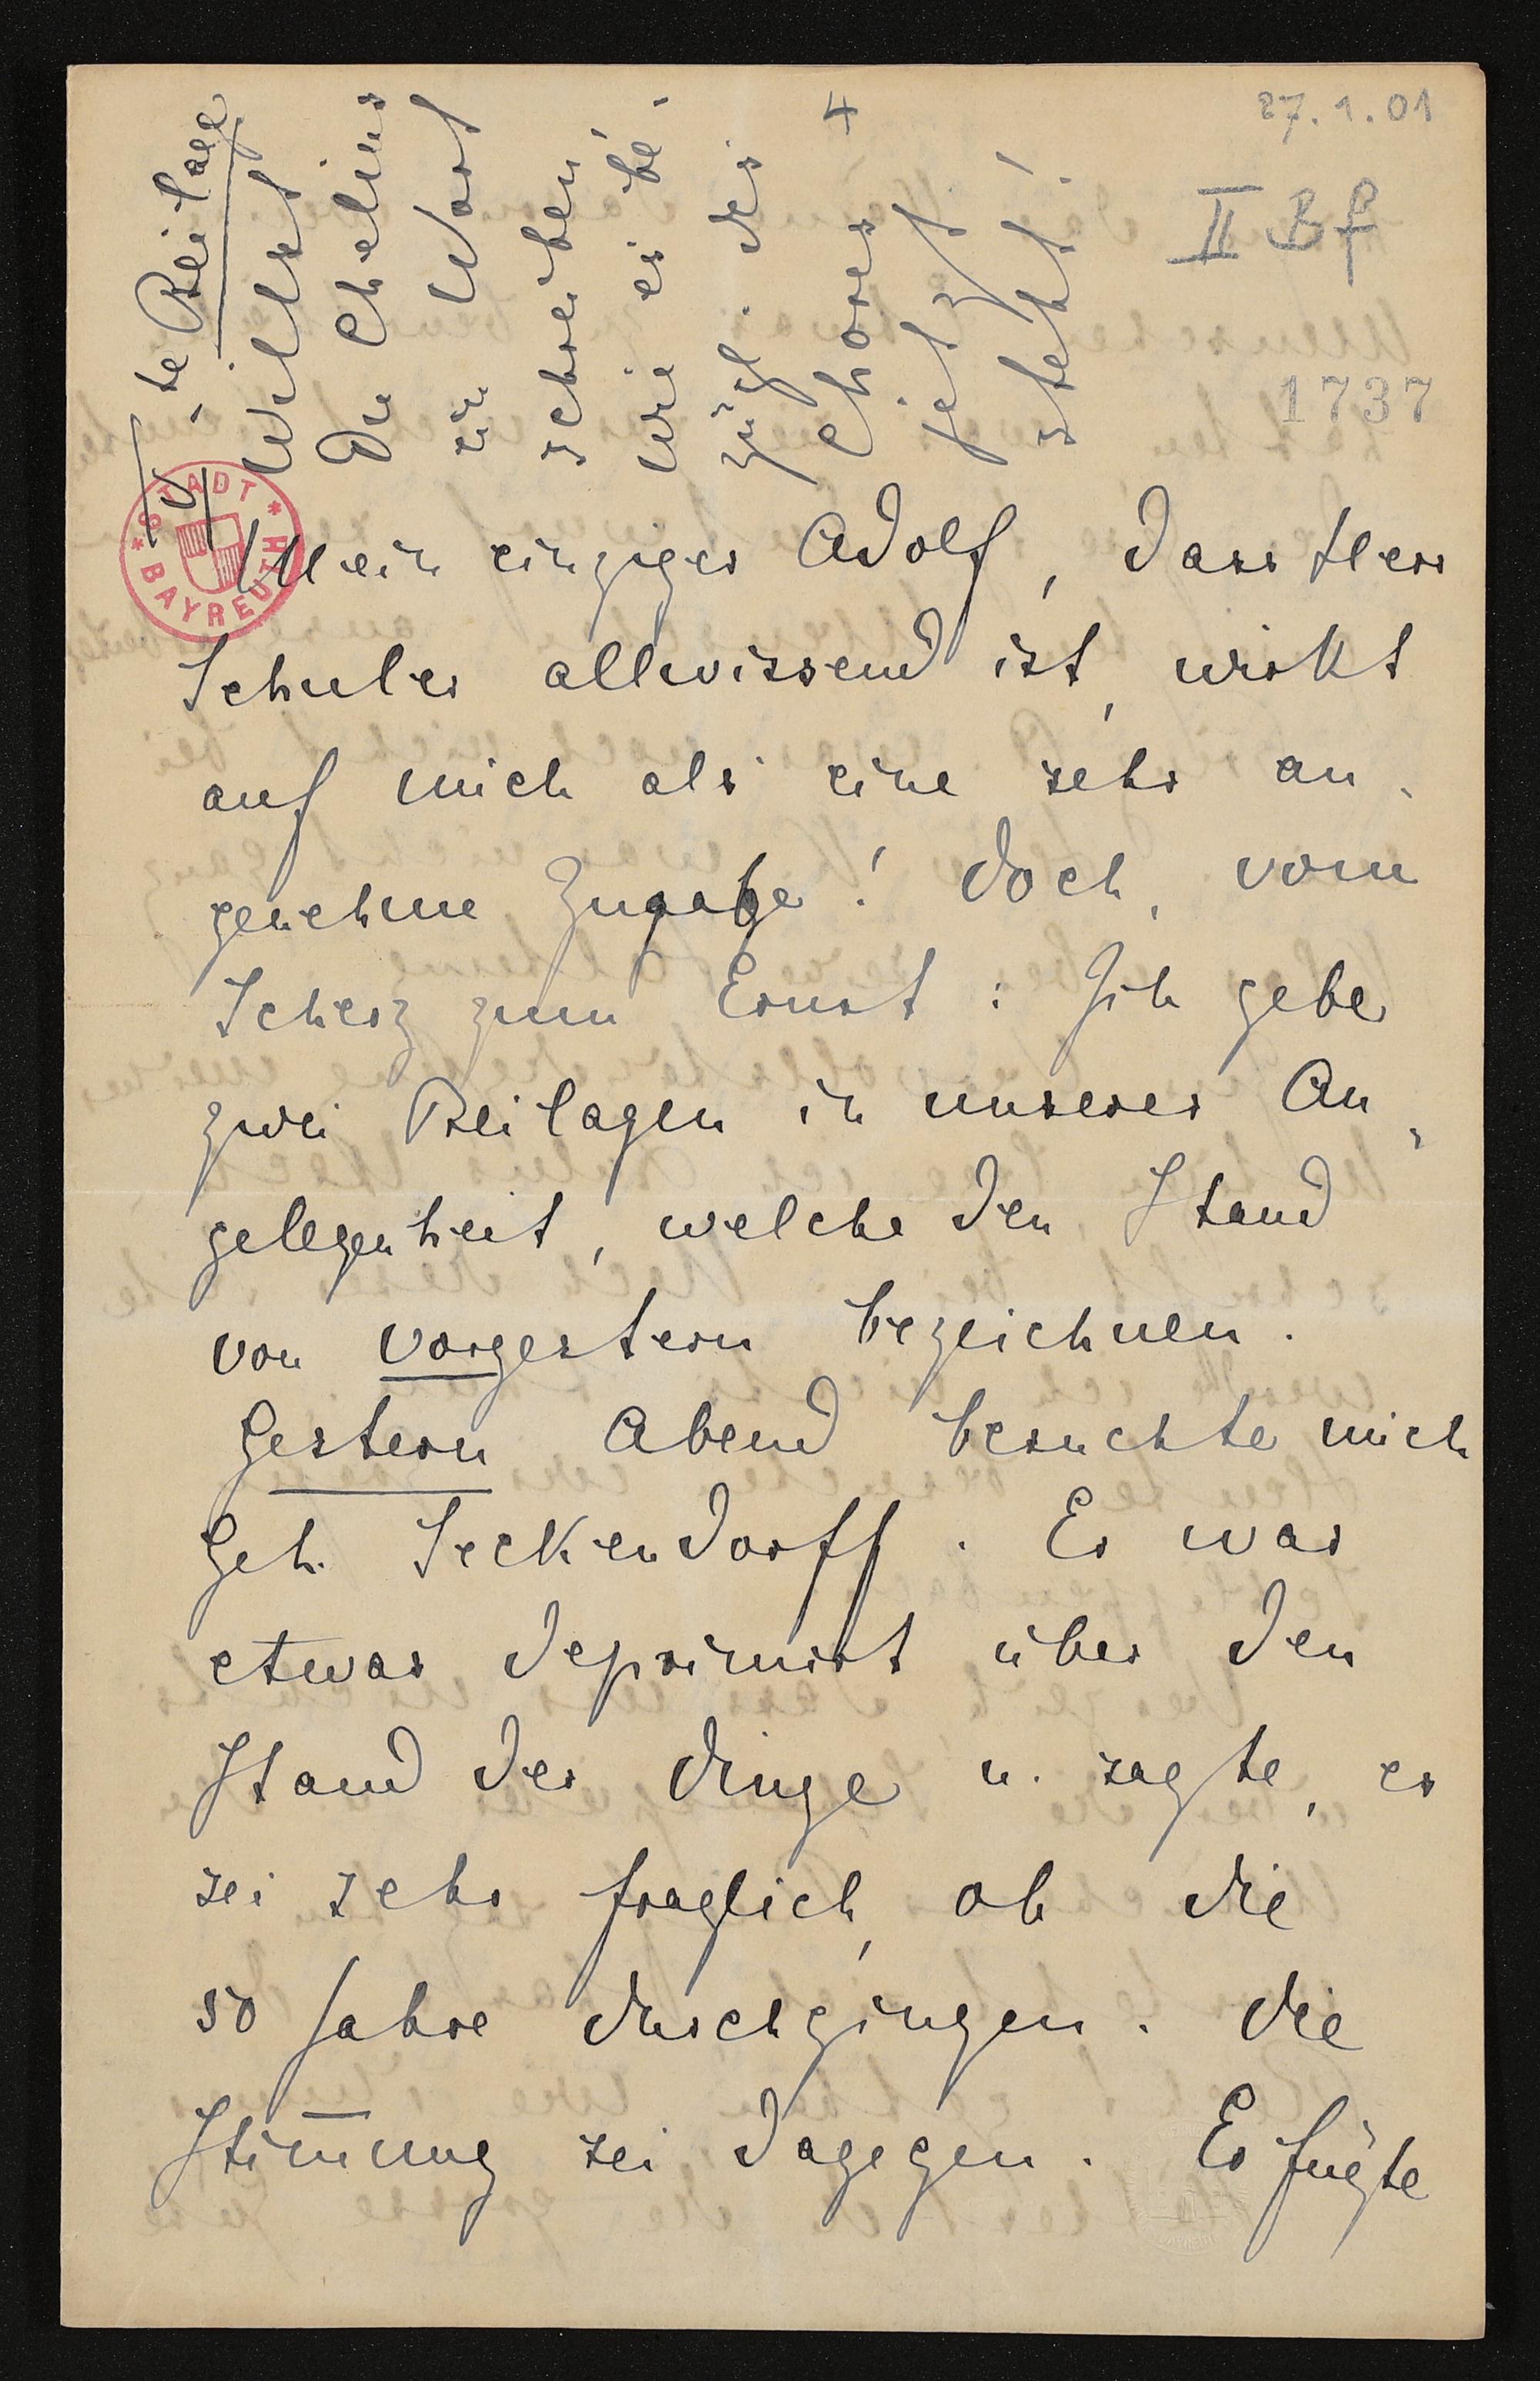 4
27.1.01
II Bf
1737
STADT
BAYREUTH
te Beilage
Willst
Du Chelius
ein Wort
schreiben,
wie es be-
zügl. des
Chores
jetzt
steht!
Mein einziger Adolf, dass Herr
Schuler allwissend ist, wirkt
auf mich als eine sehr an-
genehme Zugabe! Doch, vom
Scherz zum Ernst: Ich gebe
zwei Beilagen in unserer An-
gelegenheit, welche den Stand
von vorgestern bezeichnen.
Gestern Abend besuchte mich
Geh. Seckendorff. Er war
etwas deprimirt über den
Stand der Dinge u. sagte, es
sei sehr fraglich, ob die
50 Jahre durchgingen. Die
Stim̄ung sei dagegen. Er fügte